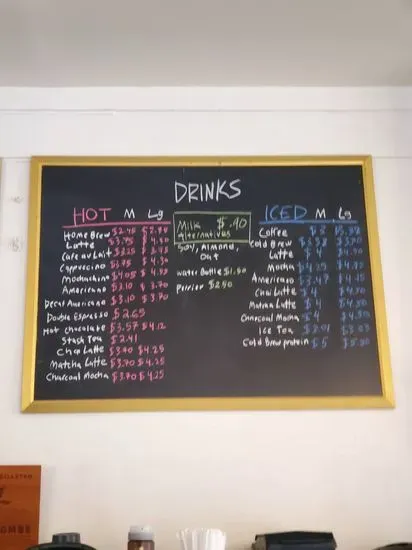 DRINKS
HOT M Lg
Home Brew $2.45 $2.90
Latte $3.75 $4.30
Cafe au Lait $3.25 $3.75
Cappuccino $3.75 $4.30
Mochachino $4.05 $4.55
Americano $3.10 $3.70
Decaf Americano $3.10 $3.70
Double Espresso $2.65
Hot chocolate $3.57 $4.12
Stash Tea $2.41
Chai Latte $3.70 $4.25
Matcha Latte $3.70 $4.25
Charcoal Mocha $3.70 $4.25
Milk $.90
Alternatives
Soy, Almond,
Oat
Water Bottle $1.50
Perrier $2.50
ICED M Lg
Coffee $3
Cold Brew
Latte $4 $4.50
Mocha $4.25
Americano $3.47
Chai Latte $4 $4.50
Matcha Latte $4 $4.50
Charcoal Mocha $4 $4.50
Ice Tea
Cold Brew protein $5